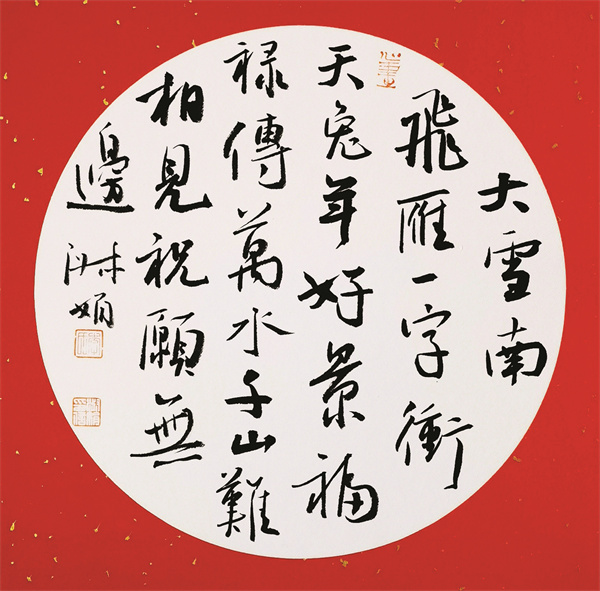 大雪南
飛雁一字衝
天兔年好景福
禄傳萬水千山難
相見祝願無
邊
娟